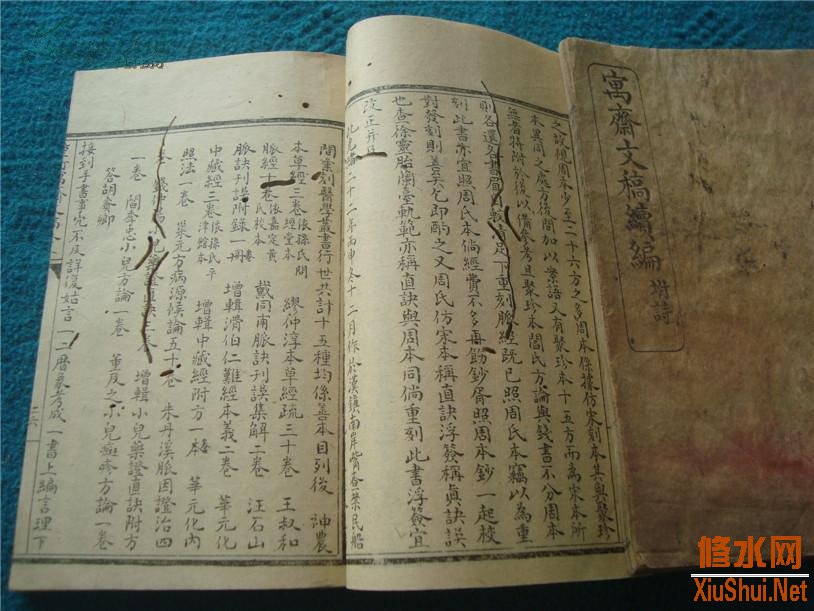 寓齋文稿續編 附詩
之設優周本少至二十六方之多周本係據仿宋刻本其與聚珍
本異同之處方後間加以案語又有聚珍本十五方而為宋本所
無者特附於後以備參考且聚珍本閻氏方論與錢書不分周本
則各還 書眉 足下重刻脈經既已照周氏本竊以為重
刻此書亦宜照周氏本倘經費不多再飭鈔胥照周本鈔一起校
對發刻則善矣乞即酌之又周氏仿宋本稱直訣浮簽稱真訣誤
也查徐靈胎蘭臺軌範亦稱直訣與周本同倘重刻此書浮簽宜
改正并及
光緒二十二年丙申冬十二月作於漢鎮南岸觜香業民船
閣案刻醫學叢書行世共計十五種均係善本目列後 神農
本草經三卷 依孫氏問經堂本 繆仲淳本草經疏三十卷 王叔和
脈經十卷 依嘉定黃氏校本 戴同甫脈訣刊誤集解二卷 汪石山
脈訣刊誤附錄一冊 增輯滑伯仁難經本義二卷 華元化
中藏經三卷 依孫氏平津館本 增輯中藏經附方一本 華元化內
照法一卷 巢元方病源候論五十卷 朱丹溪脈因證治四
卷 錢仲陽小兒藥證直訣三卷 增輯小兒藥證直訣附方
一卷 閻孝忠小兒方論一卷 董及之小兒斑疹方論一卷
答胡齋卿
接到手書事冗不及詳復姑言一二曆象考成一書上編言理下
二六
修水网
XiuShui.Net